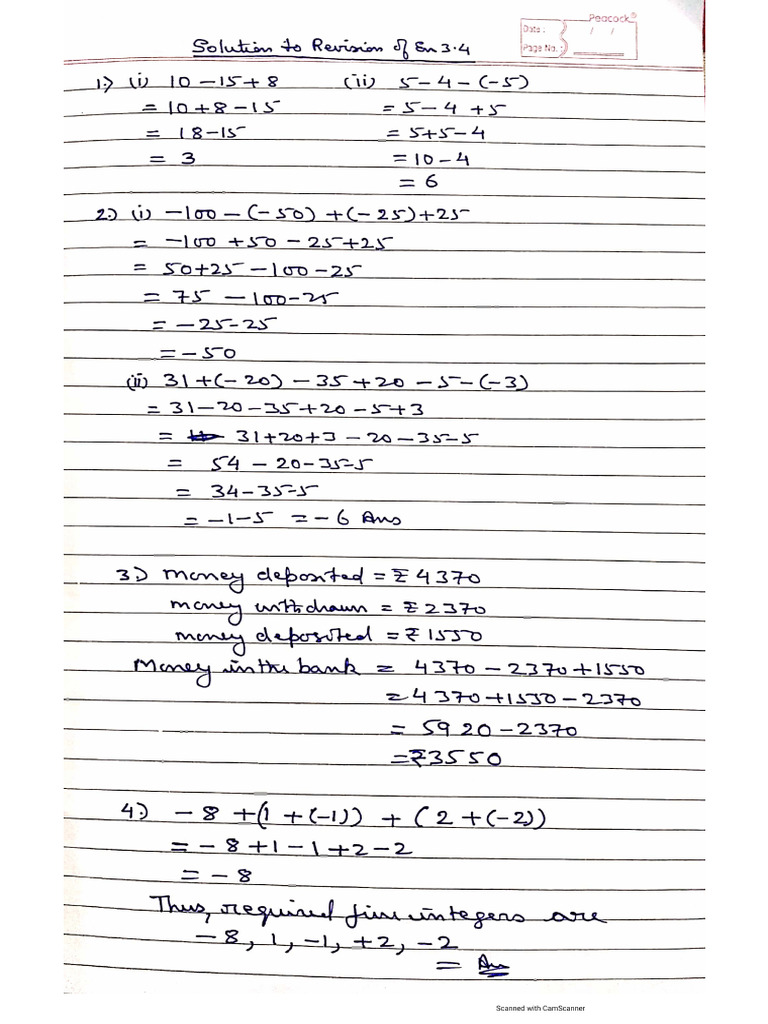 Peacock®
Date : / /
Page No. :
Solution to Revision of Ex 3.4
1.) (i) 10 - 15 + 8 (ii) 5 - 4 - (-5)
= 10 + 8 - 15 = 5 - 4 + 5
= 18 - 15 = 5 + 5 - 4
= 3 = 10 - 4
= 6
2.) (i) -100 - (-50) + (-25) + 25
= -100 + 50 - 25 + 25
= 50 + 25 - 100 - 25
= 75 - 100 - 25
= -25 - 25
= -50
(ii) 31 + (-20) - 35 + 20 - 5 - (-3)
= 31 - 20 - 35 + 20 - 5 + 3
= 31 + 20 + 3 - 20 - 35 - 5
= 54 - 20 - 35 - 5
= 34 - 35 - 5
= -1 - 5 = -6 Ans
3.) Money deposited = ₹ 4370
Money withdrawn = ₹ 2370
Money deposited = ₹ 1550
Money in the bank = 4370 - 2370 + 1550
= 4370 + 1550 - 2370
= 5920 - 2370
= ₹3550
4.) -8 + (1 + (-1)) + (2 + (-2))
= -8 + 1 - 1 + 2 - 2
= -8
Thus, required five integers are
-8, 1, -1, +2, -2
= Ans
Scanned with CamScanner